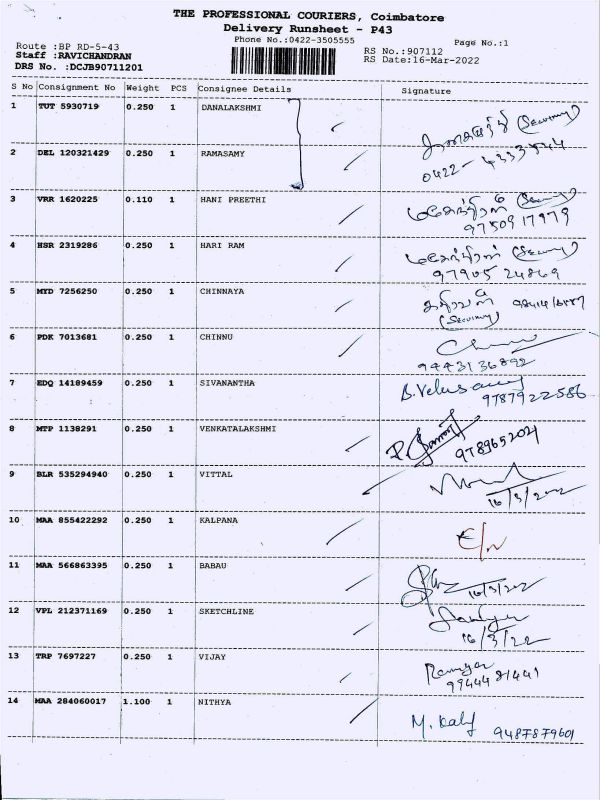 THE PROFESSIONAL COURIERS, Coimbatore
Delivery Runsheet - P43
Phone No.:0422-3505555
Page No.:1
Route :BP RD-5-43
Staff :RAVICHANDRAN
DRS No. :DCJB90711201
RS No.:907112
RS Date:16-Mar-2022
S No Consignment No Weight PCS Consignee Details Signature
1 TUT 5930719 0.250 1 DANALAKSHMI (Security)
2 DEL 120321429 0.250 1 RAMASAMY 0422-4333544
3 VRR 1620225 0.110 1 HANI PREETHI (Security)
9750917979
4 HSR 2319286 0.250 1 HARI RAM (Security)
9790524869
5 MYD 7256250 0.250 1 CHINNAYA
(Security)
6 PDK 7013681 0.250 1 CHINNU
9443136892
7 EDQ 14189459 0.250 1 SIVANANTHA B.Velusamy
9787922586
8 MTP 1138291 0.250 1 VENKATALAKSHMI
9 BLR 535294940 0.250 1 VITTAL
16/3/2022
10 MAA 855422292 0.250 1 KALPANA
11 MAA 566863395 0.250 1 BABAU 16/3/2022
12 VPL 212371169 0.250 1 SKETCHLINE
16/3/22
13 TRP 7697227 0.250 1 VIJAY
9944481441
14 MAA 284060017 1.100 1 NITHYA
9487879601